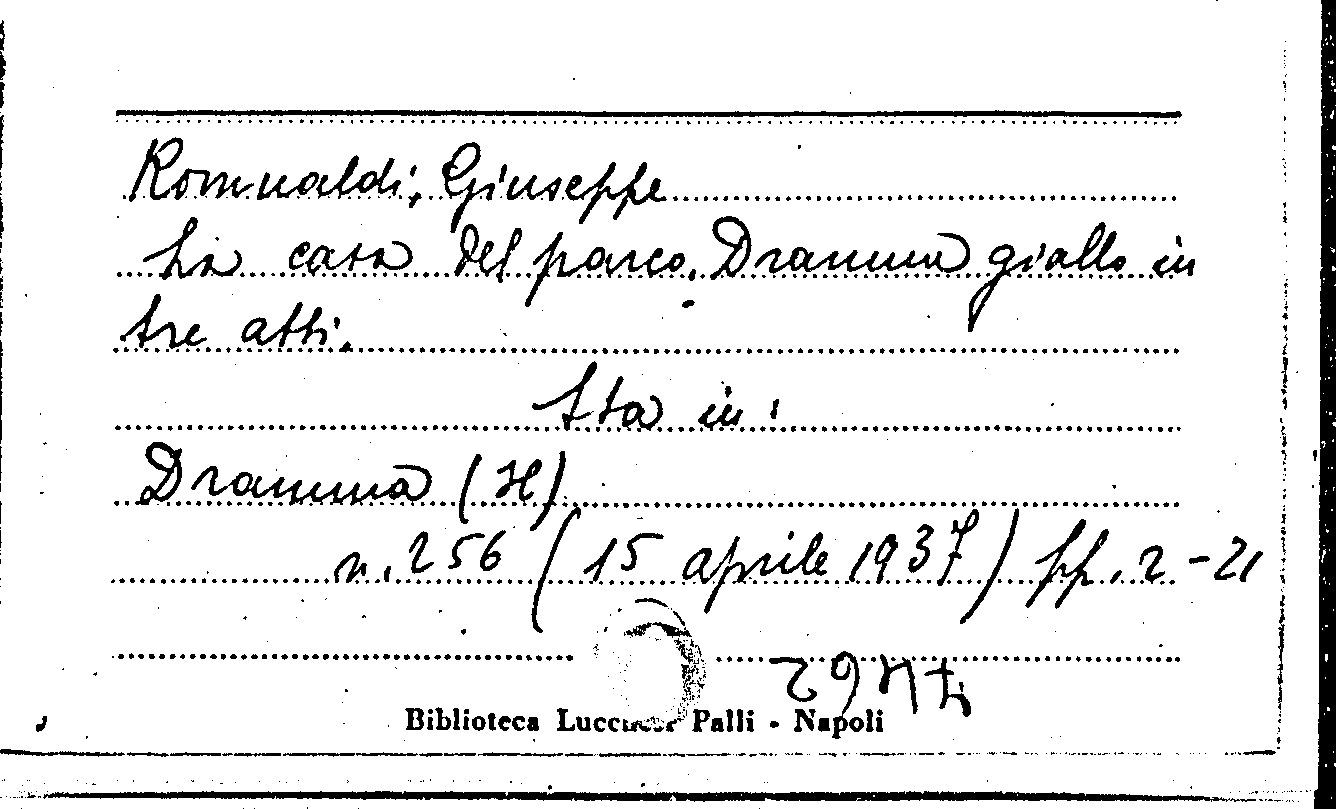 Romualdi, Giuseppe
La casa del parco. Dramma giallo in
tre atti.
Sta in:
Dramma (Il)
n. 256 (15 aprile 1937) pp. 2-21
Biblioteca Lucchesi Palli - Napoli